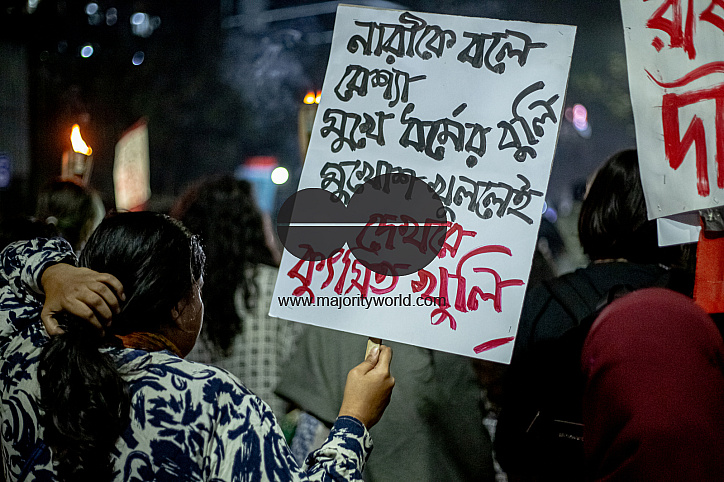 নারীকে বলে
বেশ্যা
মুখে ধর্মের বুলি
মুখোশ খুললেই
দেখবে
কুৎসিত খুলি
www.majorityworld.com